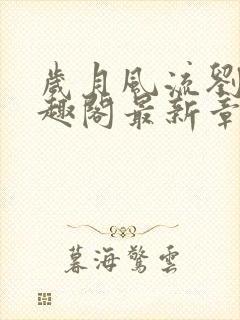 歲月風流劉
趣閣最新章
暮海驚雲